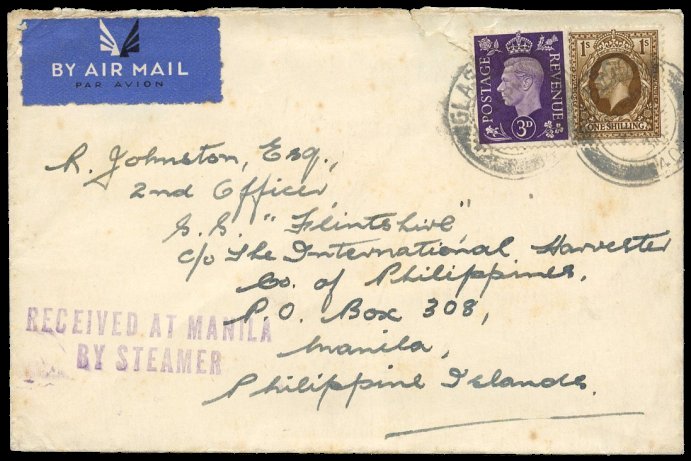 BY AIR MAIL
PAR AVION
POSTAGE REVENUE
3D
1S 1S
ONE SHILLING
GLAS
R. Johnston, Esq.,
2nd Officer,
S.S. "Flintshire",
c/o The International Harvester
Co. of Philippines,
P.O. Box 308,
Manila,
Philippine Islands.
RECEIVED AT MANILA
BY STEAMER